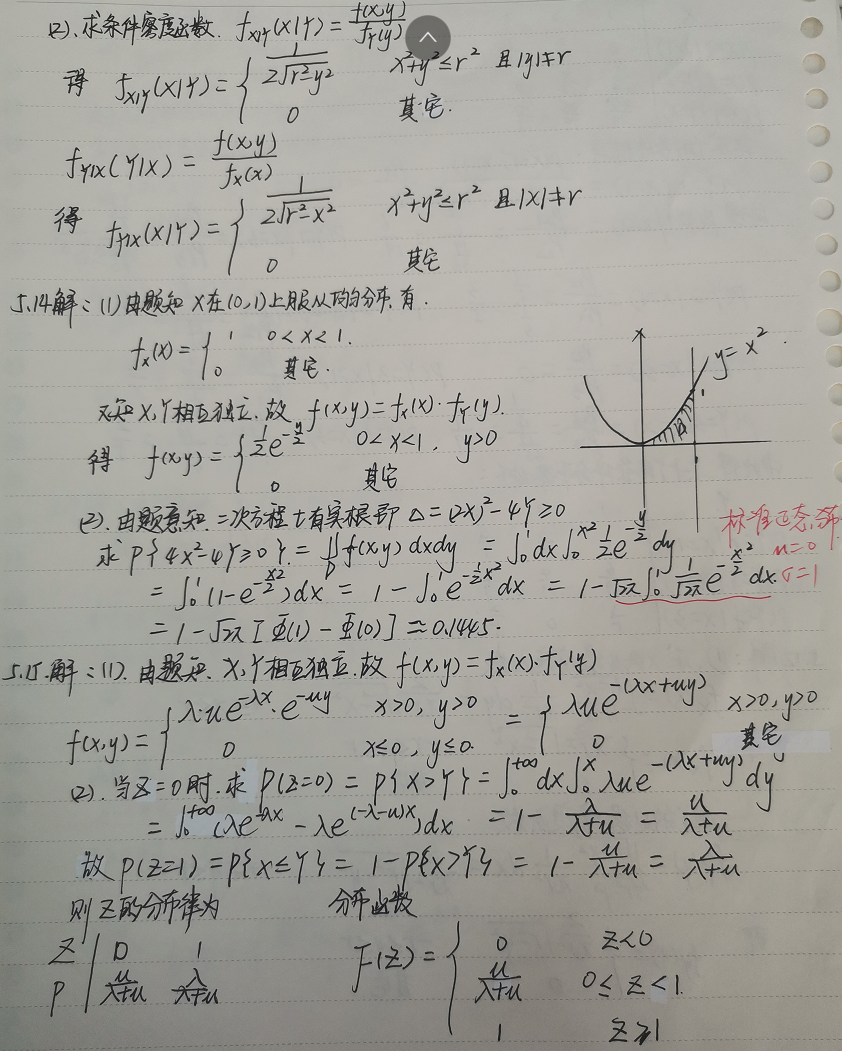 (2). 求条件密度函数. f_{X|Y}(X|Y) = \frac{f(x,y)}{f_Y(y)}
得 f_{X|Y}(X|Y) = { \frac{1}{2\sqrt{r^2-y^2}} x^2+y^2≤r^2 且|y|≠r
0 其它.
f_{Y|X}(Y|X) = \frac{f(x,y)}{f_X(x)}
得 f_{Y|X}(X|Y) = { \frac{1}{2\sqrt{r^2-x^2}} x^2+y^2≤r^2 且|X|≠r
0 其它
5.14解:(1)由题知 X在(0,1)上服从均匀分布,有.
f_X(x) = { 1 0<x<1.
0 其它.
又知X,Y相互独立,故 f(x,y)=f_X(x)·f_Y(y).
得 f(x,y) = { \frac{1}{2}e^{-\frac{y}{2}} 0<x<1, y>0
0 其它
y=x^2
1
D
(2). 由题意知 二次方程t有实根即 Δ=(2X)^2-4Y≥0
求 P{4X^2-4Y≥0} = ∬_D f(x,y)dxdy = ∫_0^1 dx∫_0^{x^2} \frac{1}{2}e^{-\frac{y}{2}}dy
= ∫_0^1 (1-e^{-\frac{x^2}{2}})dx = 1-∫_0^1 e^{-\frac{1}{2}x^2}dx = 1-\sqrt{2π}∫_0^1 \frac{1}{\sqrt{2π}}e^{-\frac{x^2}{2}}dx.
标准正态分布
u=0
σ=1
= 1-\sqrt{2π}[Φ(1)-Φ(0)] ≈0.1445.
5.15.解:(1). 由题知. X,Y相互独立.故 f(x,y)=f_X(x)·f_Y(y)
f(x,y) = { λ·ue^{-λx}·e^{-uy} x>0, y>0 = { λue^{-(λx+uy)} x>0,y>0
0 x≤0, y≤0. 0 其它
(2). 当Z=0时.求 P(Z=0) = P{X>Y} = ∫_0^{+∞}dx∫_0^x λue^{-(λx+uy)}dy
= ∫_0^{+∞}(λe^{-λx}-λe^{(-λ-u)x})dx = 1-\frac{λ}{λ+u} = \frac{u}{λ+u}
故 P(Z=1)=P{X≤Y} = 1-P{X>Y} = 1-\frac{u}{λ+u} = \frac{λ}{λ+u}
则Z的分布律为 分布函数
Z | 0 1
P | \frac{u}{λ+u} \frac{λ}{λ+u}
F(Z) = { 0 Z<0
\frac{u}{λ+u} 0≤Z<1.
1 Z≥1